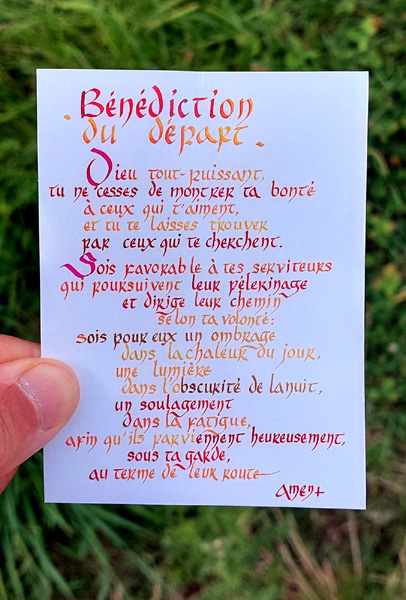 Bénédiction
du départ.
Dieu tout-puissant,
tu ne cesses de montrer ta bonté
à ceux qui t'aiment,
et tu te laisses trouver
par ceux qui te cherchent.
Sois favorable à tes serviteurs
qui poursuivent leur pélerinage
et dirige leur chemin
selon ta volonté:
sois pour eux un ombrage
dans la chaleur du jour,
une lumière
dans l'obscurité de la nuit,
un soulagement
dans la fatigue,
afin qu'ils parviennent heureusement,
sous ta garde,
au terme de leur route
Amen+